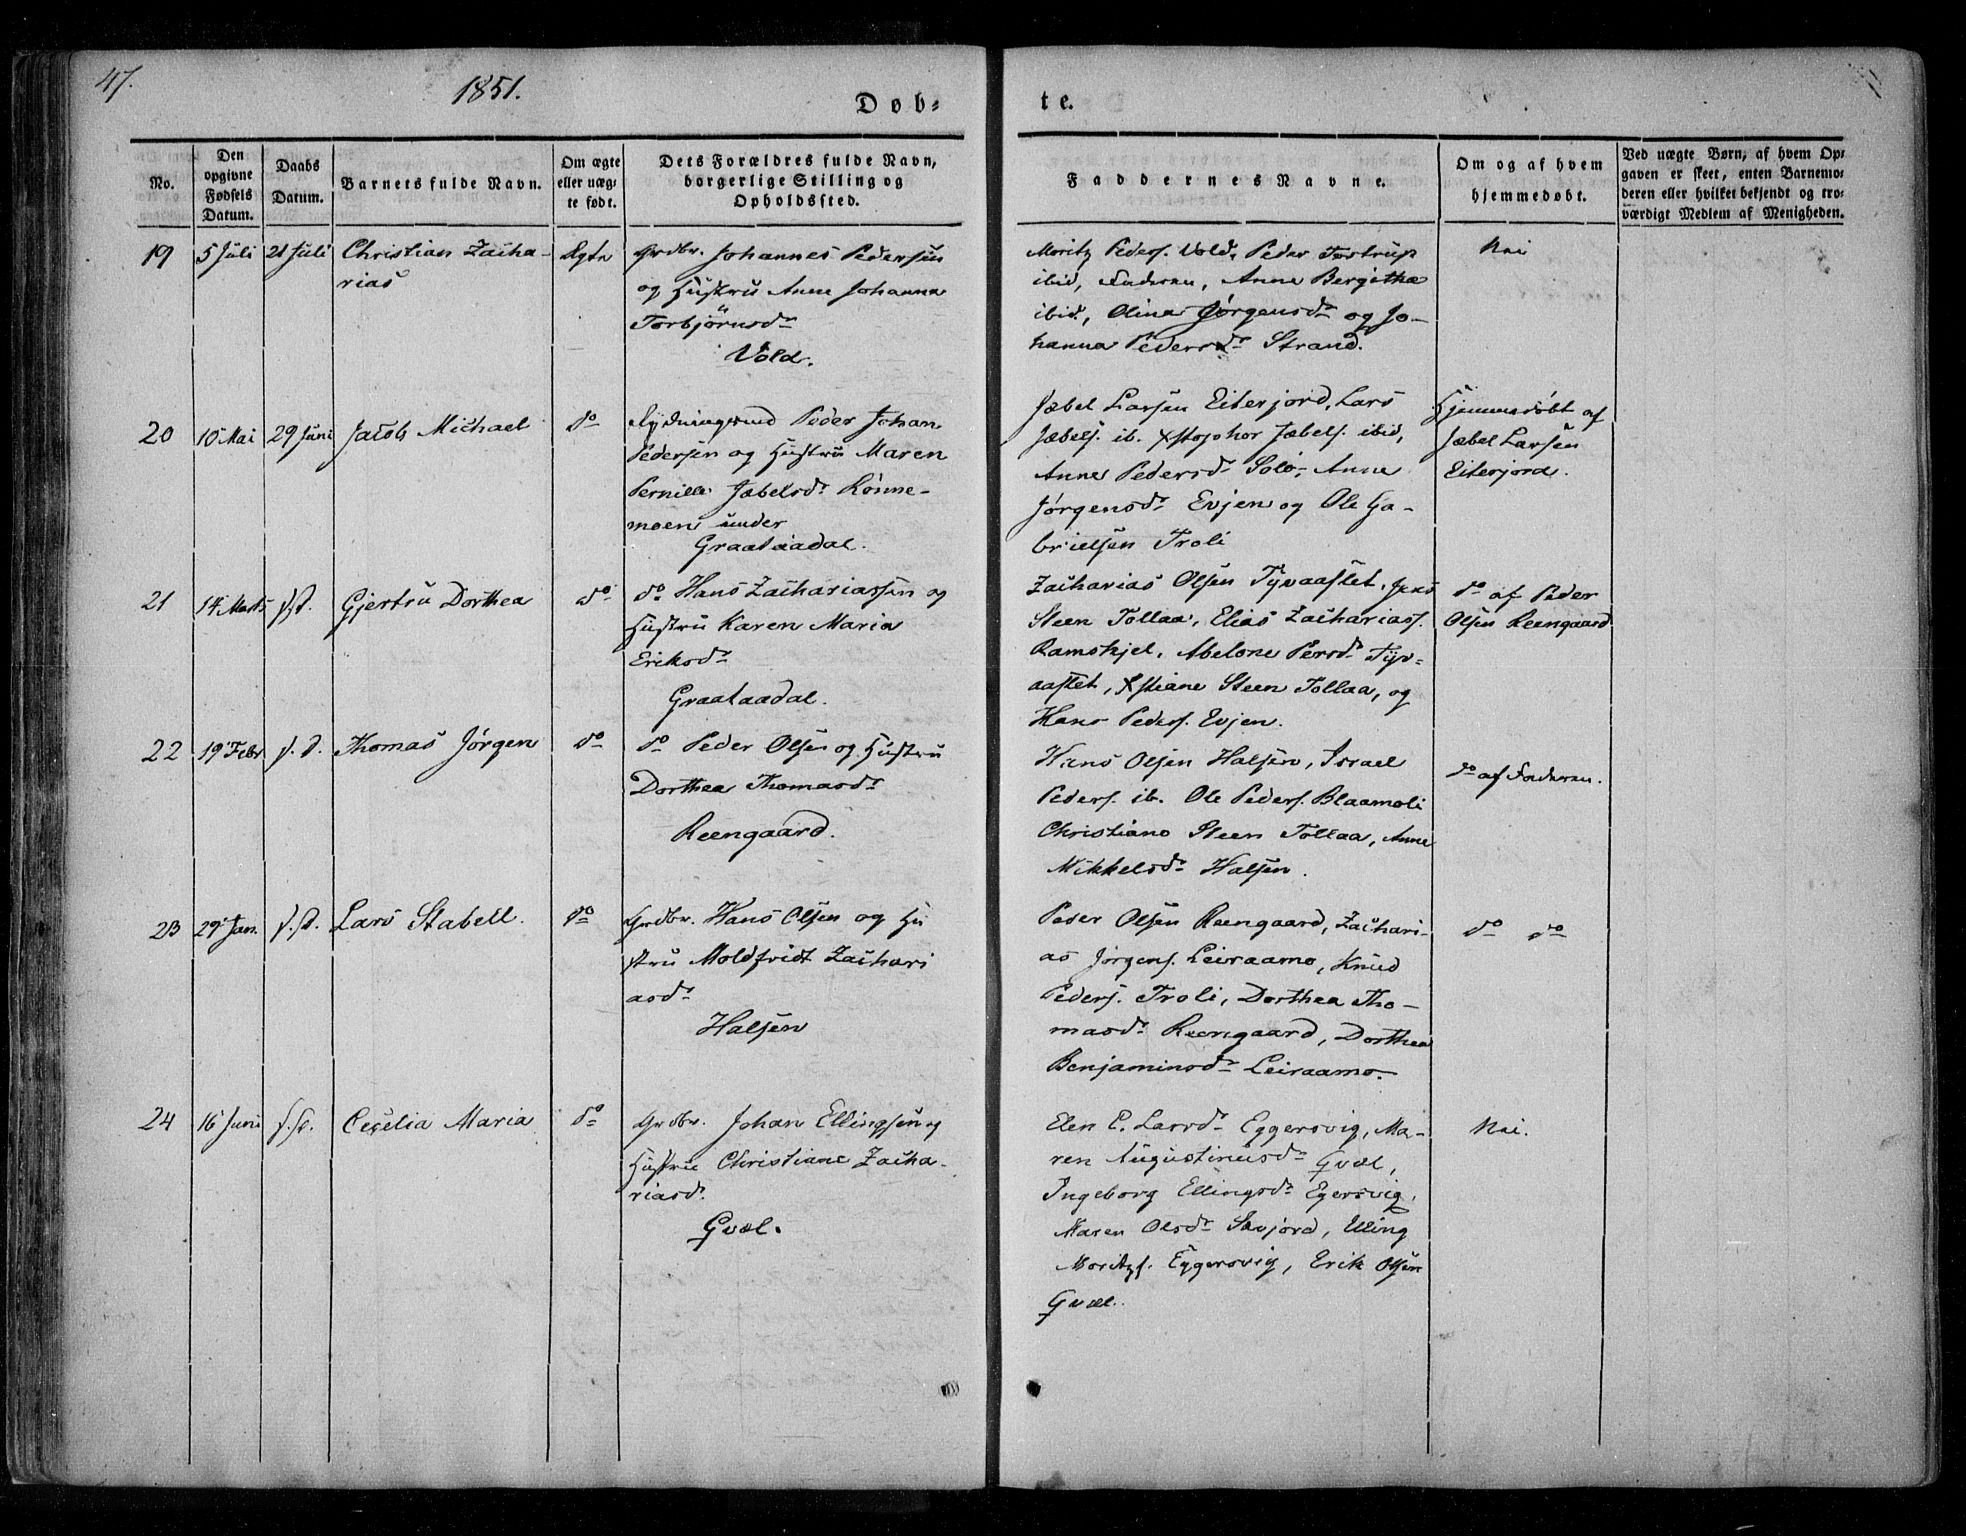 47.
1851.
Døb-
te.
No.
Den opgivne Fødsels Datum.
Daabs Datum.
Barnets fulde Navn.
Om ægte eller uæg-te født.
Dets Forældres fulde Navn, borgerlige Stilling og Opholdssted.
Faddernes Navne.
Om og af hvem hjemmedøbt.
Ved uægte Børn, af hvem Op-
gaven er skeet, enten Barnemo-
deren eller hvilket bekjendt og tro-
værdigt Medlem af Menigheden.
19 5 Juli 21 Juli Christian Zacha-
rias
Ægte
Grdbr. Johannes Pedersen
og Hustru Anne Johanna
Torbjörnsdr
Vold.
Moritz Peders. Vold, Peder Tostrup
ibid, Faderen, Anne Bergithe
ibid., Olina Jørgensdr og Jo-
hanna Pedersdr Strand.
Nei
20 10 Mai 29 Juni Jacob Michael
do
Rydningsmd Peder Johan
Pedersen og Hustru Maren
Pernille Jæbelsdr Rönne-
moen under
Graataadal.
Jæbel Larsen Eiterjord, Lars
Jæbels. ib. Xstopher Jæbels. ibid,
Anne Pedersdr Solö, Anne
Jørgensdr Evjen og Ole Ga-
brielsen Troli
Hjemmedöbt af
Jæbel Larsen
Eiterjord.
21 14 Marts s.D. Gjertru Dorthea
do
do Hans Zachariassen og
Hustru Karen Maria
Eriksdr
Graataadal.
Zacharias Olsen Tyvaaslet, Jens
Steen Tollaa, Elias Zachariass.
Ramskjel, Abelone Persdr Tyv-
aaslet, Xstiane Steen Tollaa, og
Hans Peders. Evjen.
do af Peder
Olsen Reengaard
22 19 Febr s.D. Thomas Jørgen
do
do Peder Olsen og Hustru
Dorthea Thomasdr
Reengaard.
Hans Olsen Halsen, Israel
Peders. ib. Ole Peders. Blaamoli
Christiane Steen Tollaa, Anne
Mikkelsdr Halsen.
do af Faderen.
23 29 Jan. s.D. Lars Stabell.
do
Grdbr. Hans Olsen og Hu
stru Moldfridt Zachari
asdr
Halsen
Peder Olsen Reengaard, Zachari-
as Jørgens. Leiraamo, Knud
Peders. Troli, Dorthea Tho-
masdr Reengaard, Dorthea
Benjaminsdr Leiraamo.
do do
24 16 Juni s.D. Cecelia Maria
do
Grdbr. Johan Ellingsen og
Hustru Christiane Zacha-
riasdr.
Gvæl.
Elen E. Larsdr Eggersvig, Ma-
ren Augustinusdr Gvæl,
Ingeborg Ellingsdr Egersvig,
Maren Olsdr Savjord, Elling
Moritzs. Eggersvig, Erik Olsen
Gvæl.
Nei.